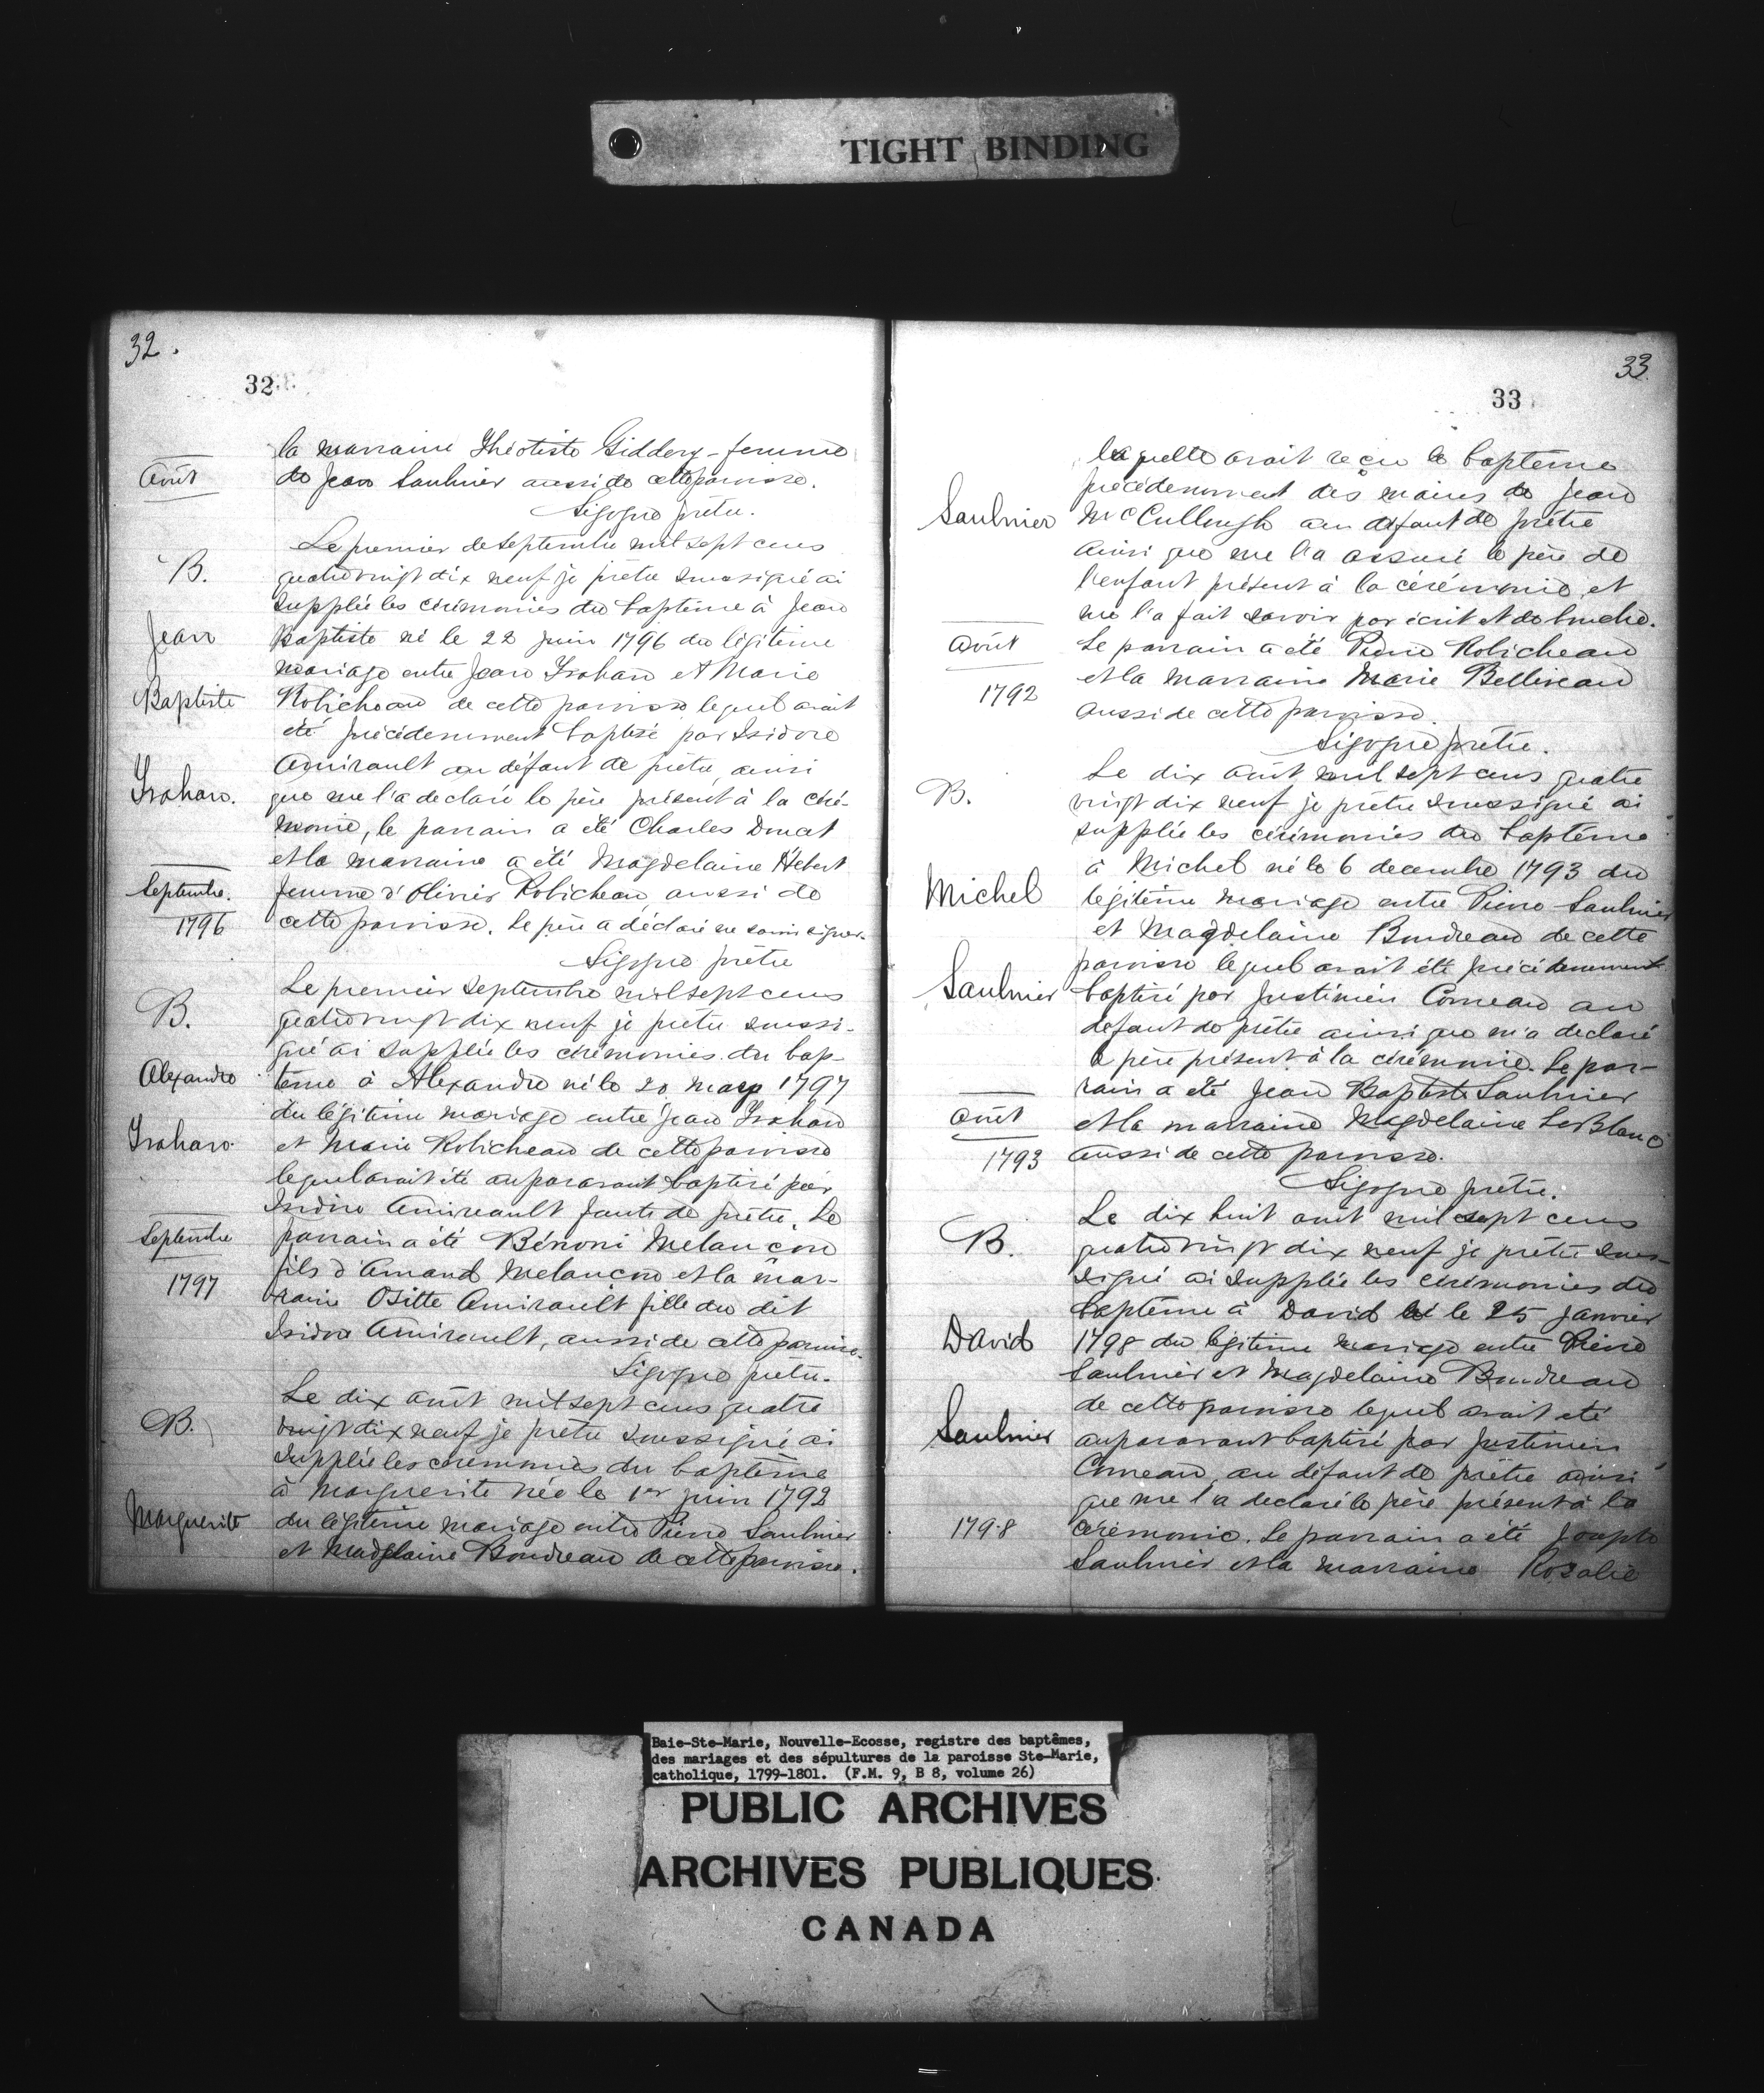 TIGHT BINDING
32.
32
la marraine Théotiste Giddery - femme
Août
de Jean Saulnier aussi de cette paroisse.
Sigogne prêtre.
Le premier de septembre mil sept cens
B.
quatre vingt dix neuf je prêtre soussigné ai
suppléé les cérémonies du baptême à Jean
Jean
Baptiste né le 22 juin 1796 du légitime
mariage entre Jean et Marie
Baptiste
Robicheau de cette paroisse lequel avait
été précédemment baptisé par Isidore
Amirault au défaut de prêtre, ainsi
que me l'a declaré le père présent à la céré-
monie, le parrain a été Charles Doucet
et la marraine a été Magdelaine Hébert
Septembre.
femme d'Olivier Robicheau, aussi de
1796
cette paroisse. Le père a déclaré ne savoir signer.
Sigogne prêtre
Le premier Septembre mil sept cens
B.
quatre vingt dix neuf je prêtre soussi-
gné ai suppléé les cérémonies du bap-
Alexandre
tême à Alexandre né le 20 mars 1797
du légitime mariage entre Jean
et Marie Robicheau de cette paroisse
lequel avait été auparavant baptisé par
Isidore Amireault faute de prêtre. Le
Septembre
parrain a été Bénoni Melançon
1797
fils d'Amand Melançon et la mar-
raine Ositte Amirault fille du dit
Isidore Amirault, aussi de cette paroisse.
Sigogne prêtre.
Le dix août mil sept cens quatre
B.
vingt dix neuf je prêtre soussigné ai
suppléé les cérémonies du baptême
à Marguerite née le 1er juin 1792
Marguerite
du légitime mariage entre Pierre Saulnier
et Madelaine Boudreau de cette paroisse.
33
33
laquelle avait reçu le baptême
précédemment des mains de Jean
Saulnier
McCullough au défaut de prêtre
ainsi que me l'a assuré le père de
l'enfant présent à la cérémonie et
me l'a fait savoir par écrit et de bouche.
Août
Le parrain a été Pierre Robicheau
1792
et la marraine Marie Belliveau
aussi de cette paroisse.
Sigogne prêtre.
Le dix août mil sept cens quatre
B.
vingt dix neuf je prêtre soussigné ai
suppléé les cérémonies du baptême
à Michel né le 6 decembre 1793 du
Michel
légitime mariage entre Pierre Saulnier
et Magdelaine Boudreau de cette
paroisse lequel avait été précédemment
Saulnier
baptisé par Justinien Comeau au
défaut de prêtre ainsi que m'a declaré
le père présent à la cérémonie. Le par-
rain a été Jean Baptiste Saulnier
Août
et la marraine Magdelaine LeBlanc
1793
aussi de cette paroisse.
Sigogne prêtre.
Le dix huit août mil sept cens
B.
quatre vingt dix neuf je prêtre sous-
signé ai suppléé les cérémonies du
baptême à David né le 25 Janvier
David
1798 du légitime mariage entre Pierre
Saulnier et Magdelaine Boudreau
de cette paroisse lequel avait été
Saulnier
auparavant baptisé par Justinien
Comeau, au défaut de prêtre ainsi
que me l'a declaré le père présent à la
1798
cérémonie. Le parrain a été Joseph
Saulnier et la marraine Rosalie
Baie-Ste-Marie, Nouvelle-Ecosse, registre des baptêmes,
des mariages et des sépultures de la paroisse Ste-Marie,
catholique, 1799-1801. (F.M. 9, B 8, volume 26)
PUBLIC ARCHIVES
ARCHIVES PUBLIQUES
CANADA